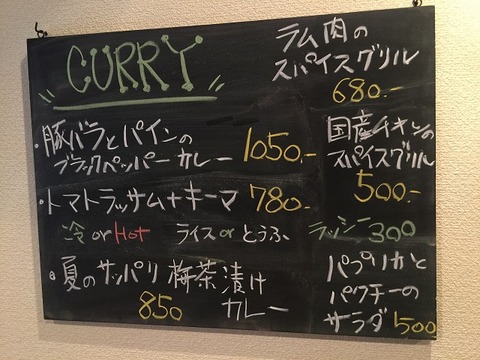 CURRY
・豚バラとパインの
ブラックペッパーカレー 1050.-
・トマトラッサム+キーマ 780.-
冷 or Hot ライス or とうふ
・夏のサッパリ梅茶漬け
カレー
850
ラム肉の
スパイスグリル
680.-
国産チキンの
スパイスグリル
500.-
ラッシー 300
パプリカと
パクチーの
サラダ 500